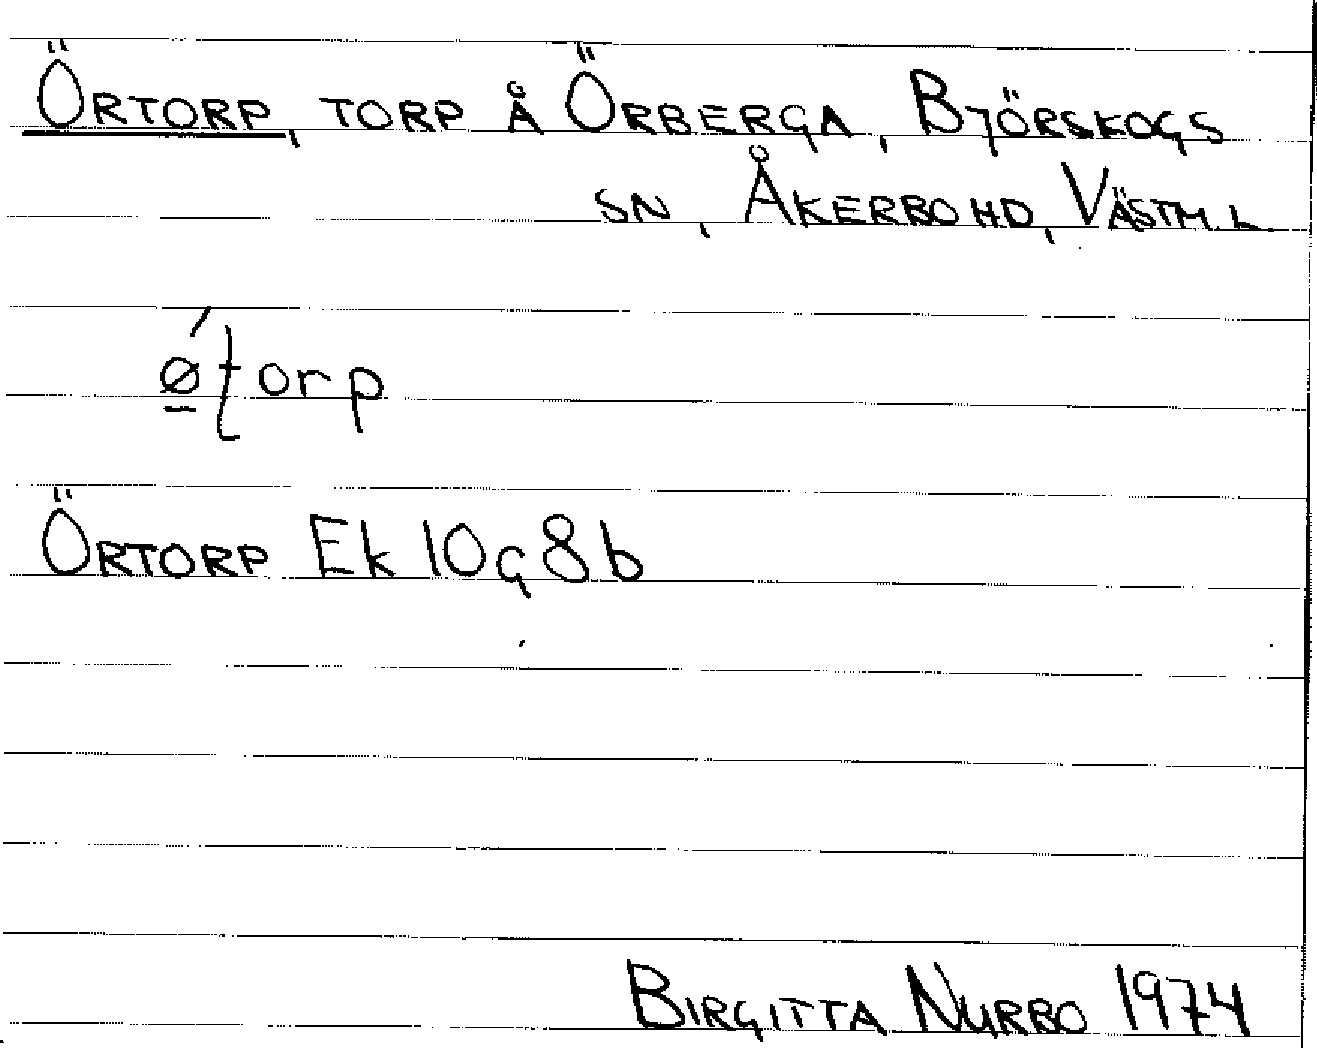 Örtorp, torp å Örberga, Björskogs
sn, Åkerbo hd, Västm. l.
ǿ̠ʈorp
Örtorp Ek 10g8b
Birgitta Nurbo 1974